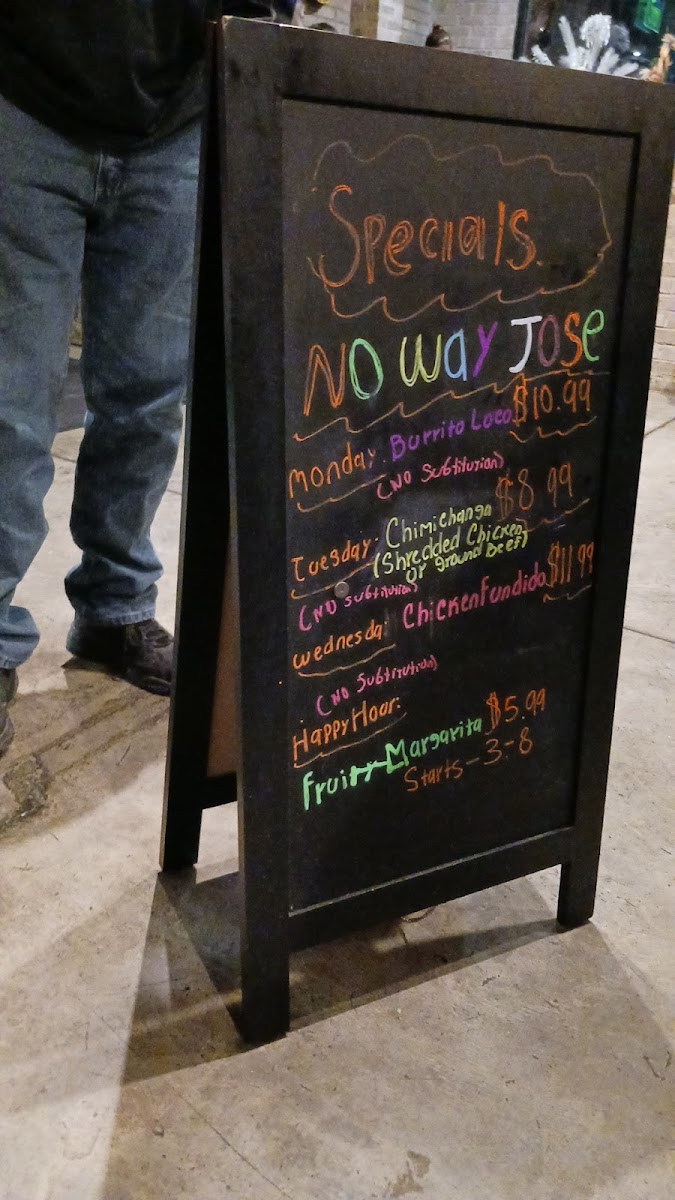 Specials
NO WAY JOSE
Monday: Burrito Loco $10.99
(NO Subtitution)
Tuesday: Chimichanga $8.99
(Shredded Chicken
or ground Beef)
(NO Subtitution)
Wednesda: Chicken Fundido $11.99
(NO Subtitution)
Happy Hour:
Fruity Margarita $5.99
Starts - 3 - 8